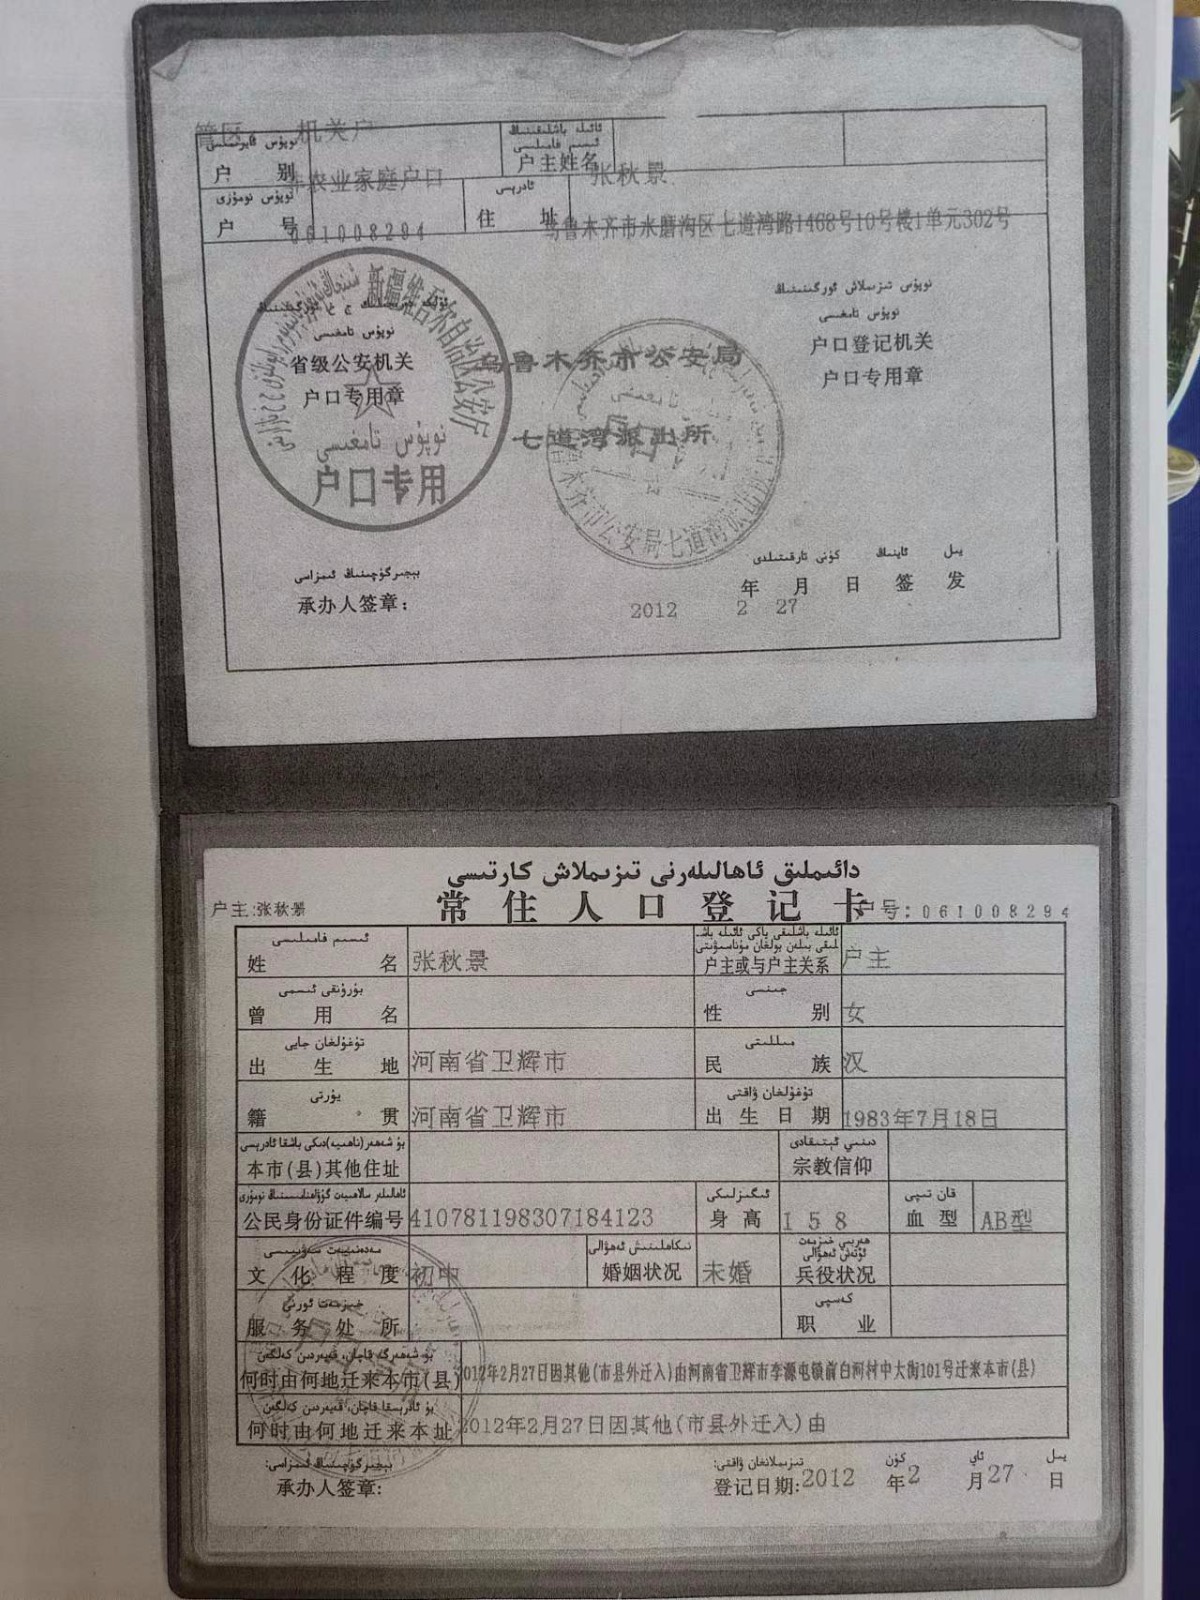 管区 机关户
نوپۇس
户 别
非农业家庭户口
ئائىلە باشلىقىنىڭ
ئىسىم فامىلىسى
户主姓名
张秋景
نوپۇس نومۇرى
户 号
061008294
ئادرېسى
住 址
乌鲁木齐市水磨沟区七道湾路1468号10号楼1单元302号
新疆维吾尔自治区公安厅
نوپۇس تامغىسى
省级公安机关
户口专用章
نوپۇس تامغىسى
户口专用
乌鲁木齐市公安局
七道湾派出所
乌鲁木齐市公安局七道湾派出所
نوپۇس تىزىملاش ئورگىنىنىڭ
نوپۇس تامغىسى
户口登记机关
户口专用章
بېجىرگۈچىنىڭ ئىمزاسى
承办人签章:
يىل ئاينىڭ كۈنى تارقىتىلدى
年 月 日 签 发
2012 2 27
دائىملىق ئاھالىلەرنى تىزىملاش كارتىسى
常住人口登记卡
户主:张秋景
户号:061008294
ئىسىم فامىلىسى
姓 名
张秋景
ئائىلە باشلىقى ياكى ئائىلە باش-
لىقى بىلەن بولغان مۇناسىۋىتى
户主或与户主关系
户主
بۇرۇنقى ئىسمى
曾 用 名
جىنسى
性 别
女
تۇغۇلغان جايى
出 生 地
河南省卫辉市
مىللىتى
民 族
汉
يۇرتى
籍 贯
河南省卫辉市
تۇغۇلغان ۋاقتى
出生日期
1983年7月18日
بۇ شەھەر(ناھىيە)دىكى باشقا ئادرېسى
本市(县)其他住址
دىنىي ئېتىقادى
宗教信仰
ئاھالىلەر سالاھىيەت گۇۋاھنامىسىنىڭ نومۇرى
公民身份证件编号
410781198307184123
ئىگىزلىكى
身 高
158
قان تىپى
血 型
AB型
مەدەنىيەت سەۋىيىسى
文 化 程 度
初中
نىكاھلىنىش ئەھۋالى
婚姻状况
未婚
ھەربىي خىزمەت
ئۆتەش ئەھۋالى
兵役状况
خىزمەت ئورنى
服 务 处 所
كەسپى
职 业
بۇ شەھەرگە قاچان، قەيەردىن كەلگەن
何时由何地迁来本市(县)
2012年2月27日因其他(市县外迁入)由河南省卫辉市李源屯镇前白河村中大街101号迁来本市(县)
بۇ ئادرېسقا قاچان، قەيەردىن كەلگەن
何时由何地迁来本址
2012年2月27日因其他(市县外迁入)由
بېجىرگۈچىنىڭ ئىمزاسى:
承办人签章:
تىزىملانغان ۋاقتى: يىل ئاي كۈن
登记日期:2012年2月27日